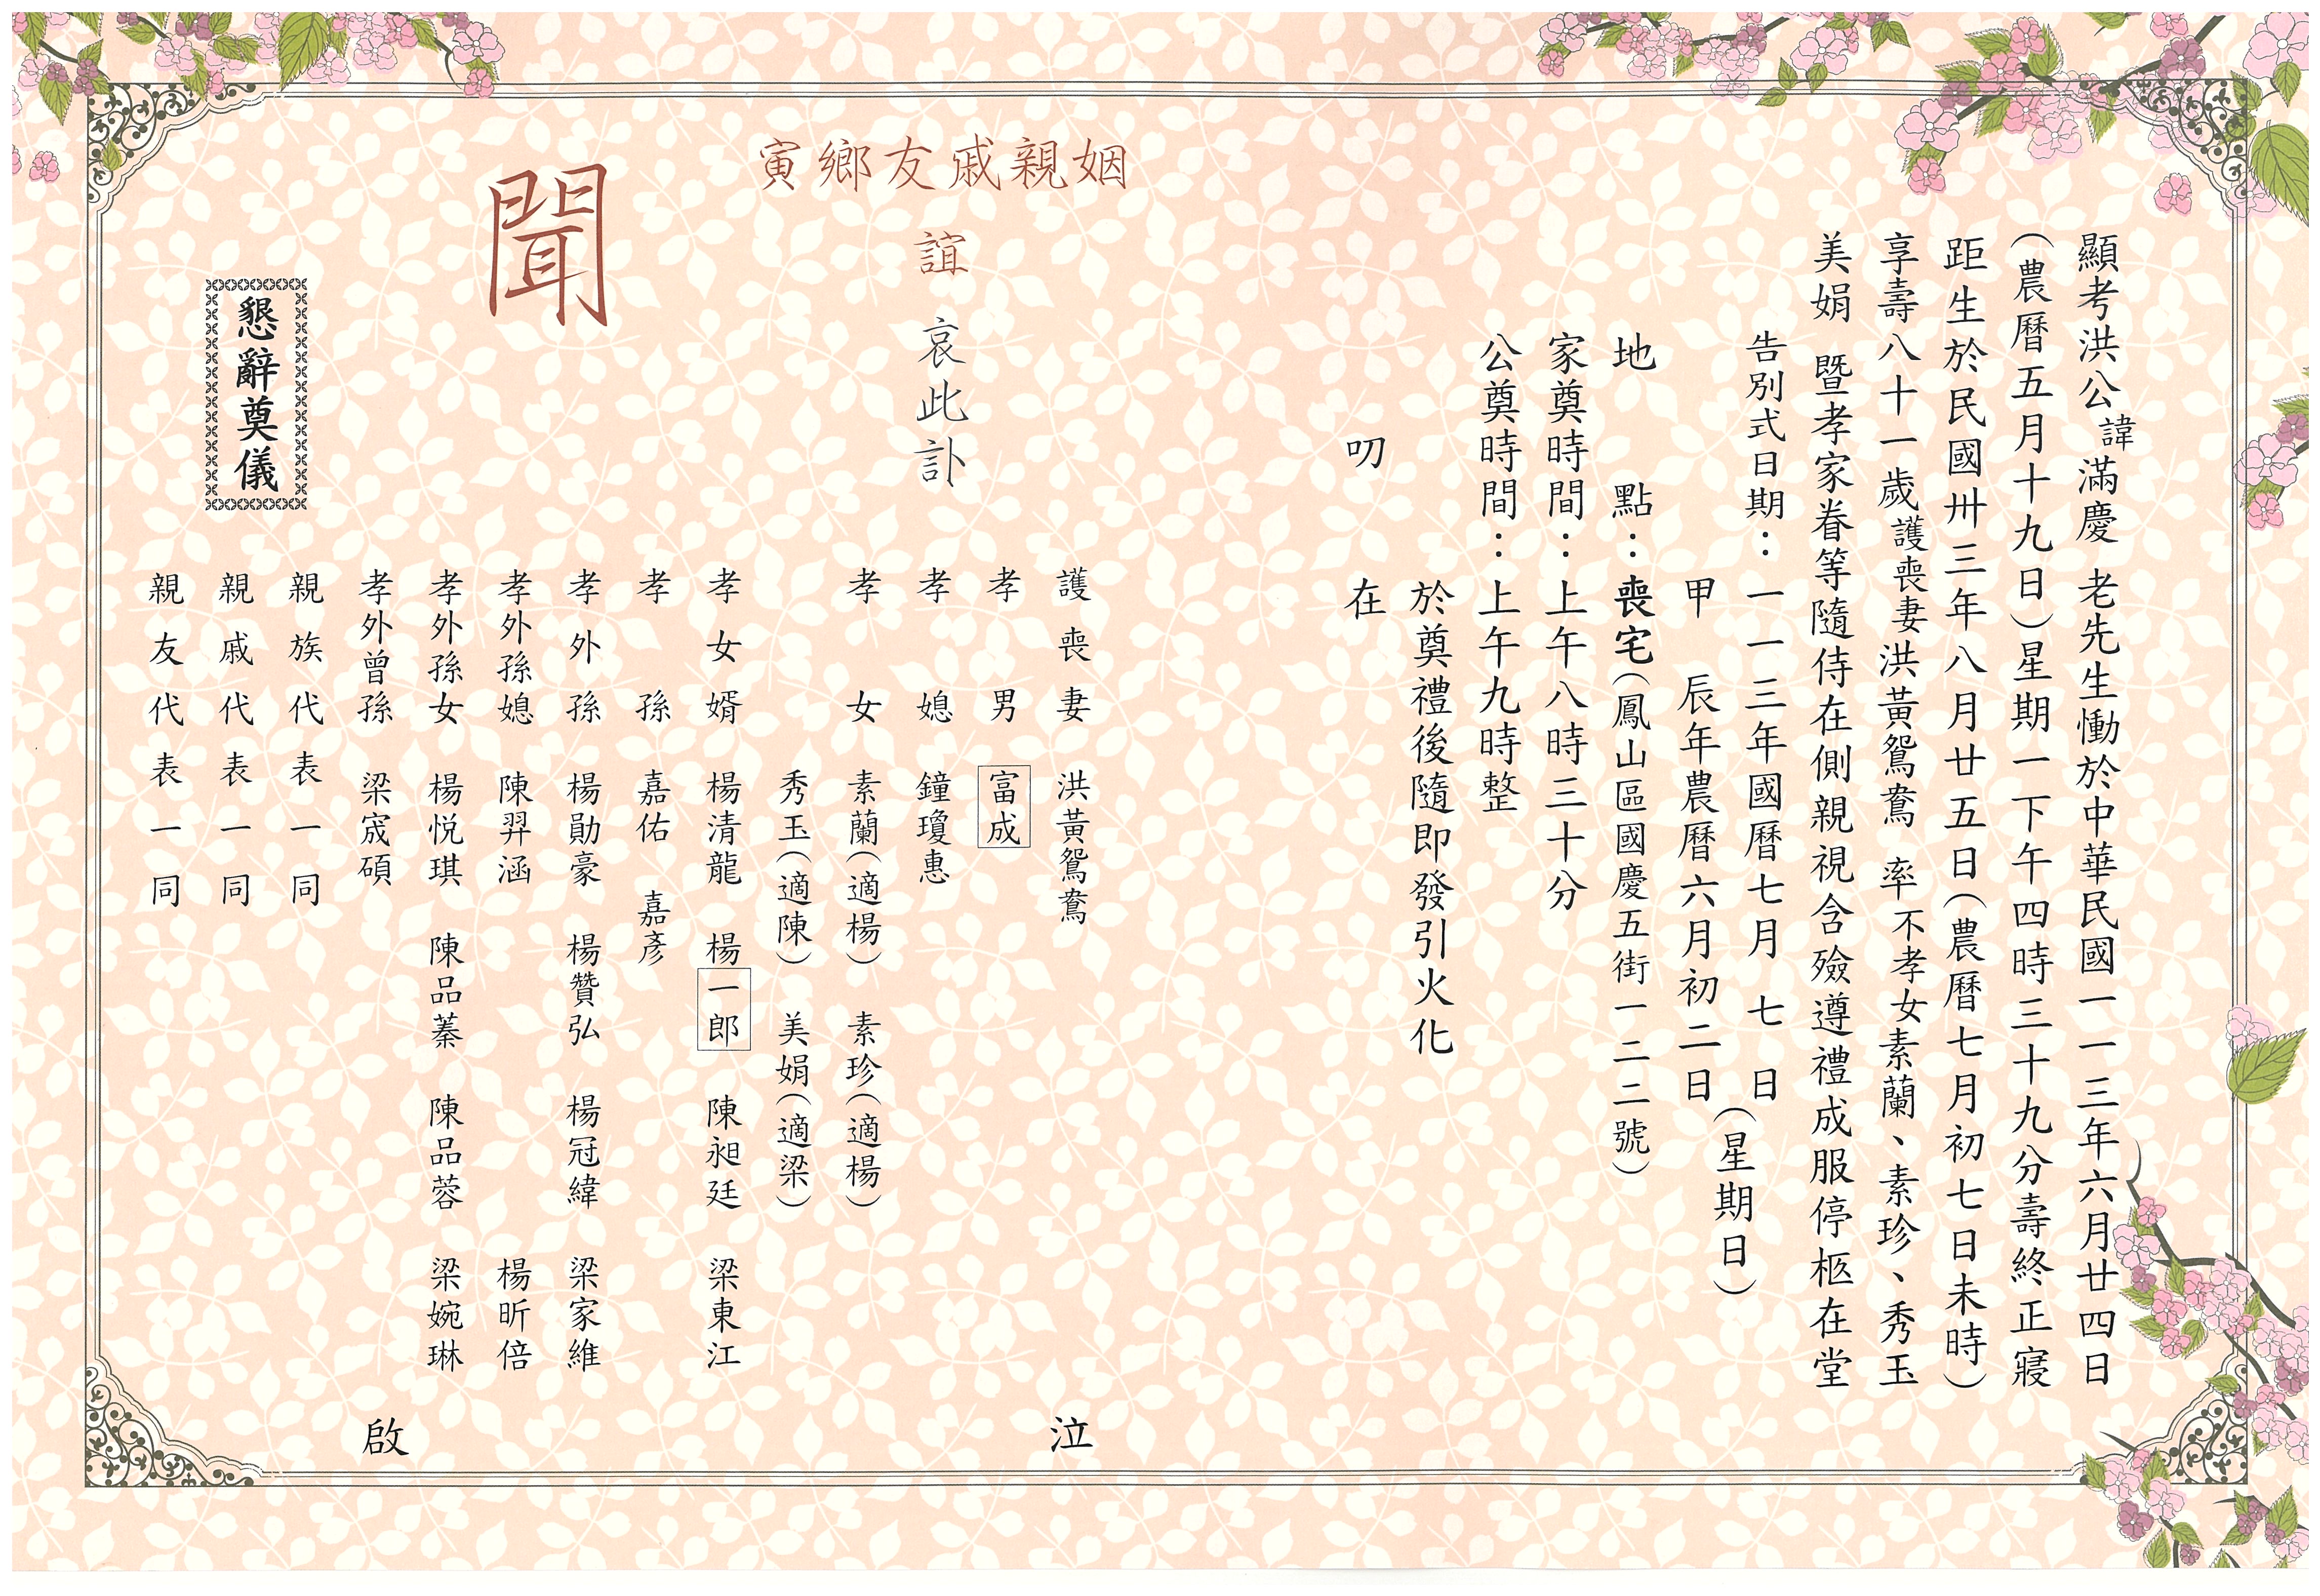 顯考洪公諱滿慶 老先生慟於中華民國一一三年六月廿四日
(農曆五月十九日)星期一下午四時三十九分壽終正寢
距生於民國卅三年八月廿五日(農曆七月初七日未時)
享壽八十一歲護喪妻洪黃鴛鴦 率不孝女素蘭、素珍、秀玉
美娟 暨孝家眷等隨侍在側親視含殮遵禮成服停柩在堂
告別式日期:一一三年國曆七月 七 日
甲 辰年農曆六月初二日
(星期日)
地 點:喪宅(鳳山區國慶五街一二二號)
家奠時間:上午八時三十分
公奠時間:上午九時整
於奠禮後隨即發引火化
叨 在
寅鄉友戚親姻
誼 哀此訃
聞
護喪妻 洪黃鴛鴦
孝 男 富成
孝 媳 鐘瓊惠
孝 女 素蘭(適楊) 素珍(適楊)
秀玉(適陳) 美娟(適梁)
孝女婿 楊清龍 楊一郎 陳昶廷 梁東江
孝 孫 嘉佑 嘉彥
孝外孫 楊勛豪 楊贊弘 楊冠緯 梁家維
孝外孫媳 陳羿涵 楊昕倍
孝外孫女 楊悅琪 陳品蓁 陳品蓉 梁婉琳
孝外曾孫 梁宬碩
親族代表一同
親戚代表一同
親友代表一同
泣
啟
懇辭奠儀